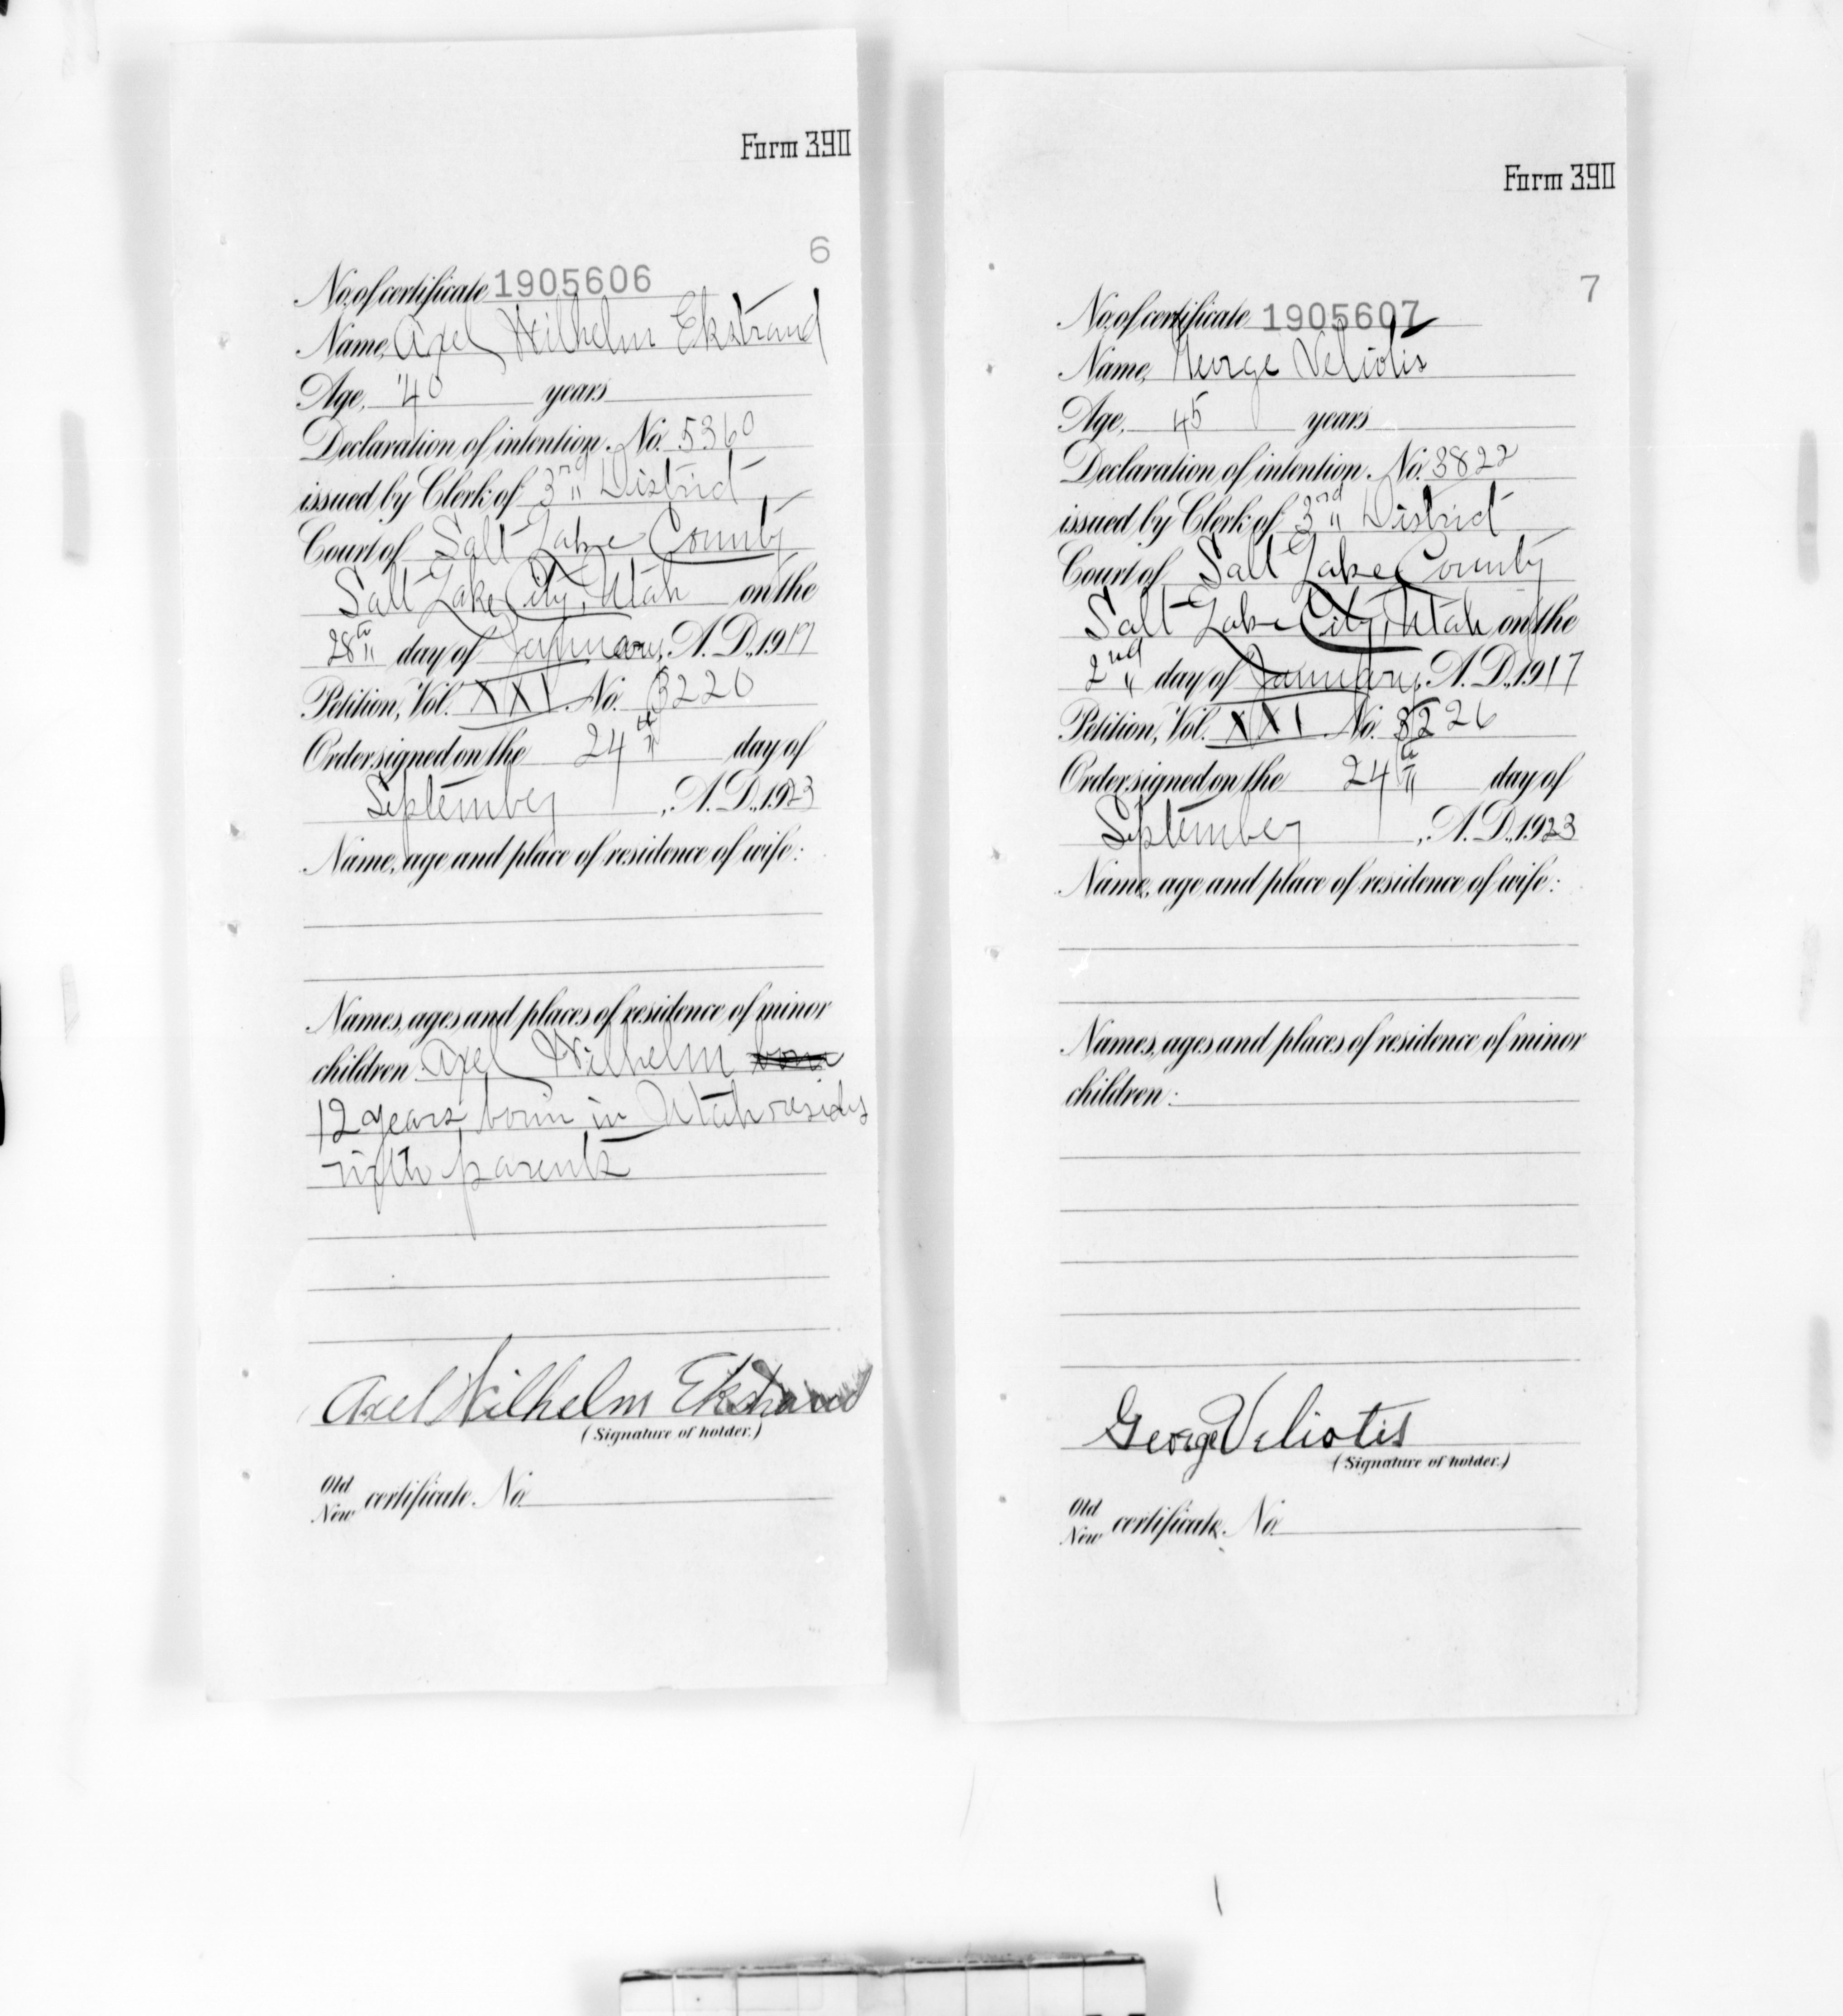 Form 390
6
No. of certificate 1905606
Name, Axel Wilhelm Ekstrand
Age, 40 years
Declaration of intention No. 5360
issued by Clerk of 3rd District
Court of Salt Lake County
Salt Lake City, Utah on the
28th day of January, A. D., 1917
Petition, Vol. XXI No. 3220
Order signed on the 24th day of
September, A. D., 1923
Name, age and place of residence of wife:
Names, ages and places of residence of minor
children: Axel Wilhelm born
12 years, born in Utah resides
with parents
Axel Wilhelm Ekstrand
(Signature of holder.)
Old
New certificate No.
Form 390
7
No. of certificate 1905607
Name, George Veliotis
Age, 45 years
Declaration of intention No. 3822
issued by Clerk of 3rd District
Court of Salt Lake County
Salt Lake City, Utah on the
2nd day of January, A. D., 1917
Petition, Vol. XXI No. 3226
Order signed on the 24th day of
September, A. D., 1923
Name, age and place of residence of wife:
Names, ages and places of residence of minor
children:
George Veliotis
(Signature of holder.)
Old
New certificate No.